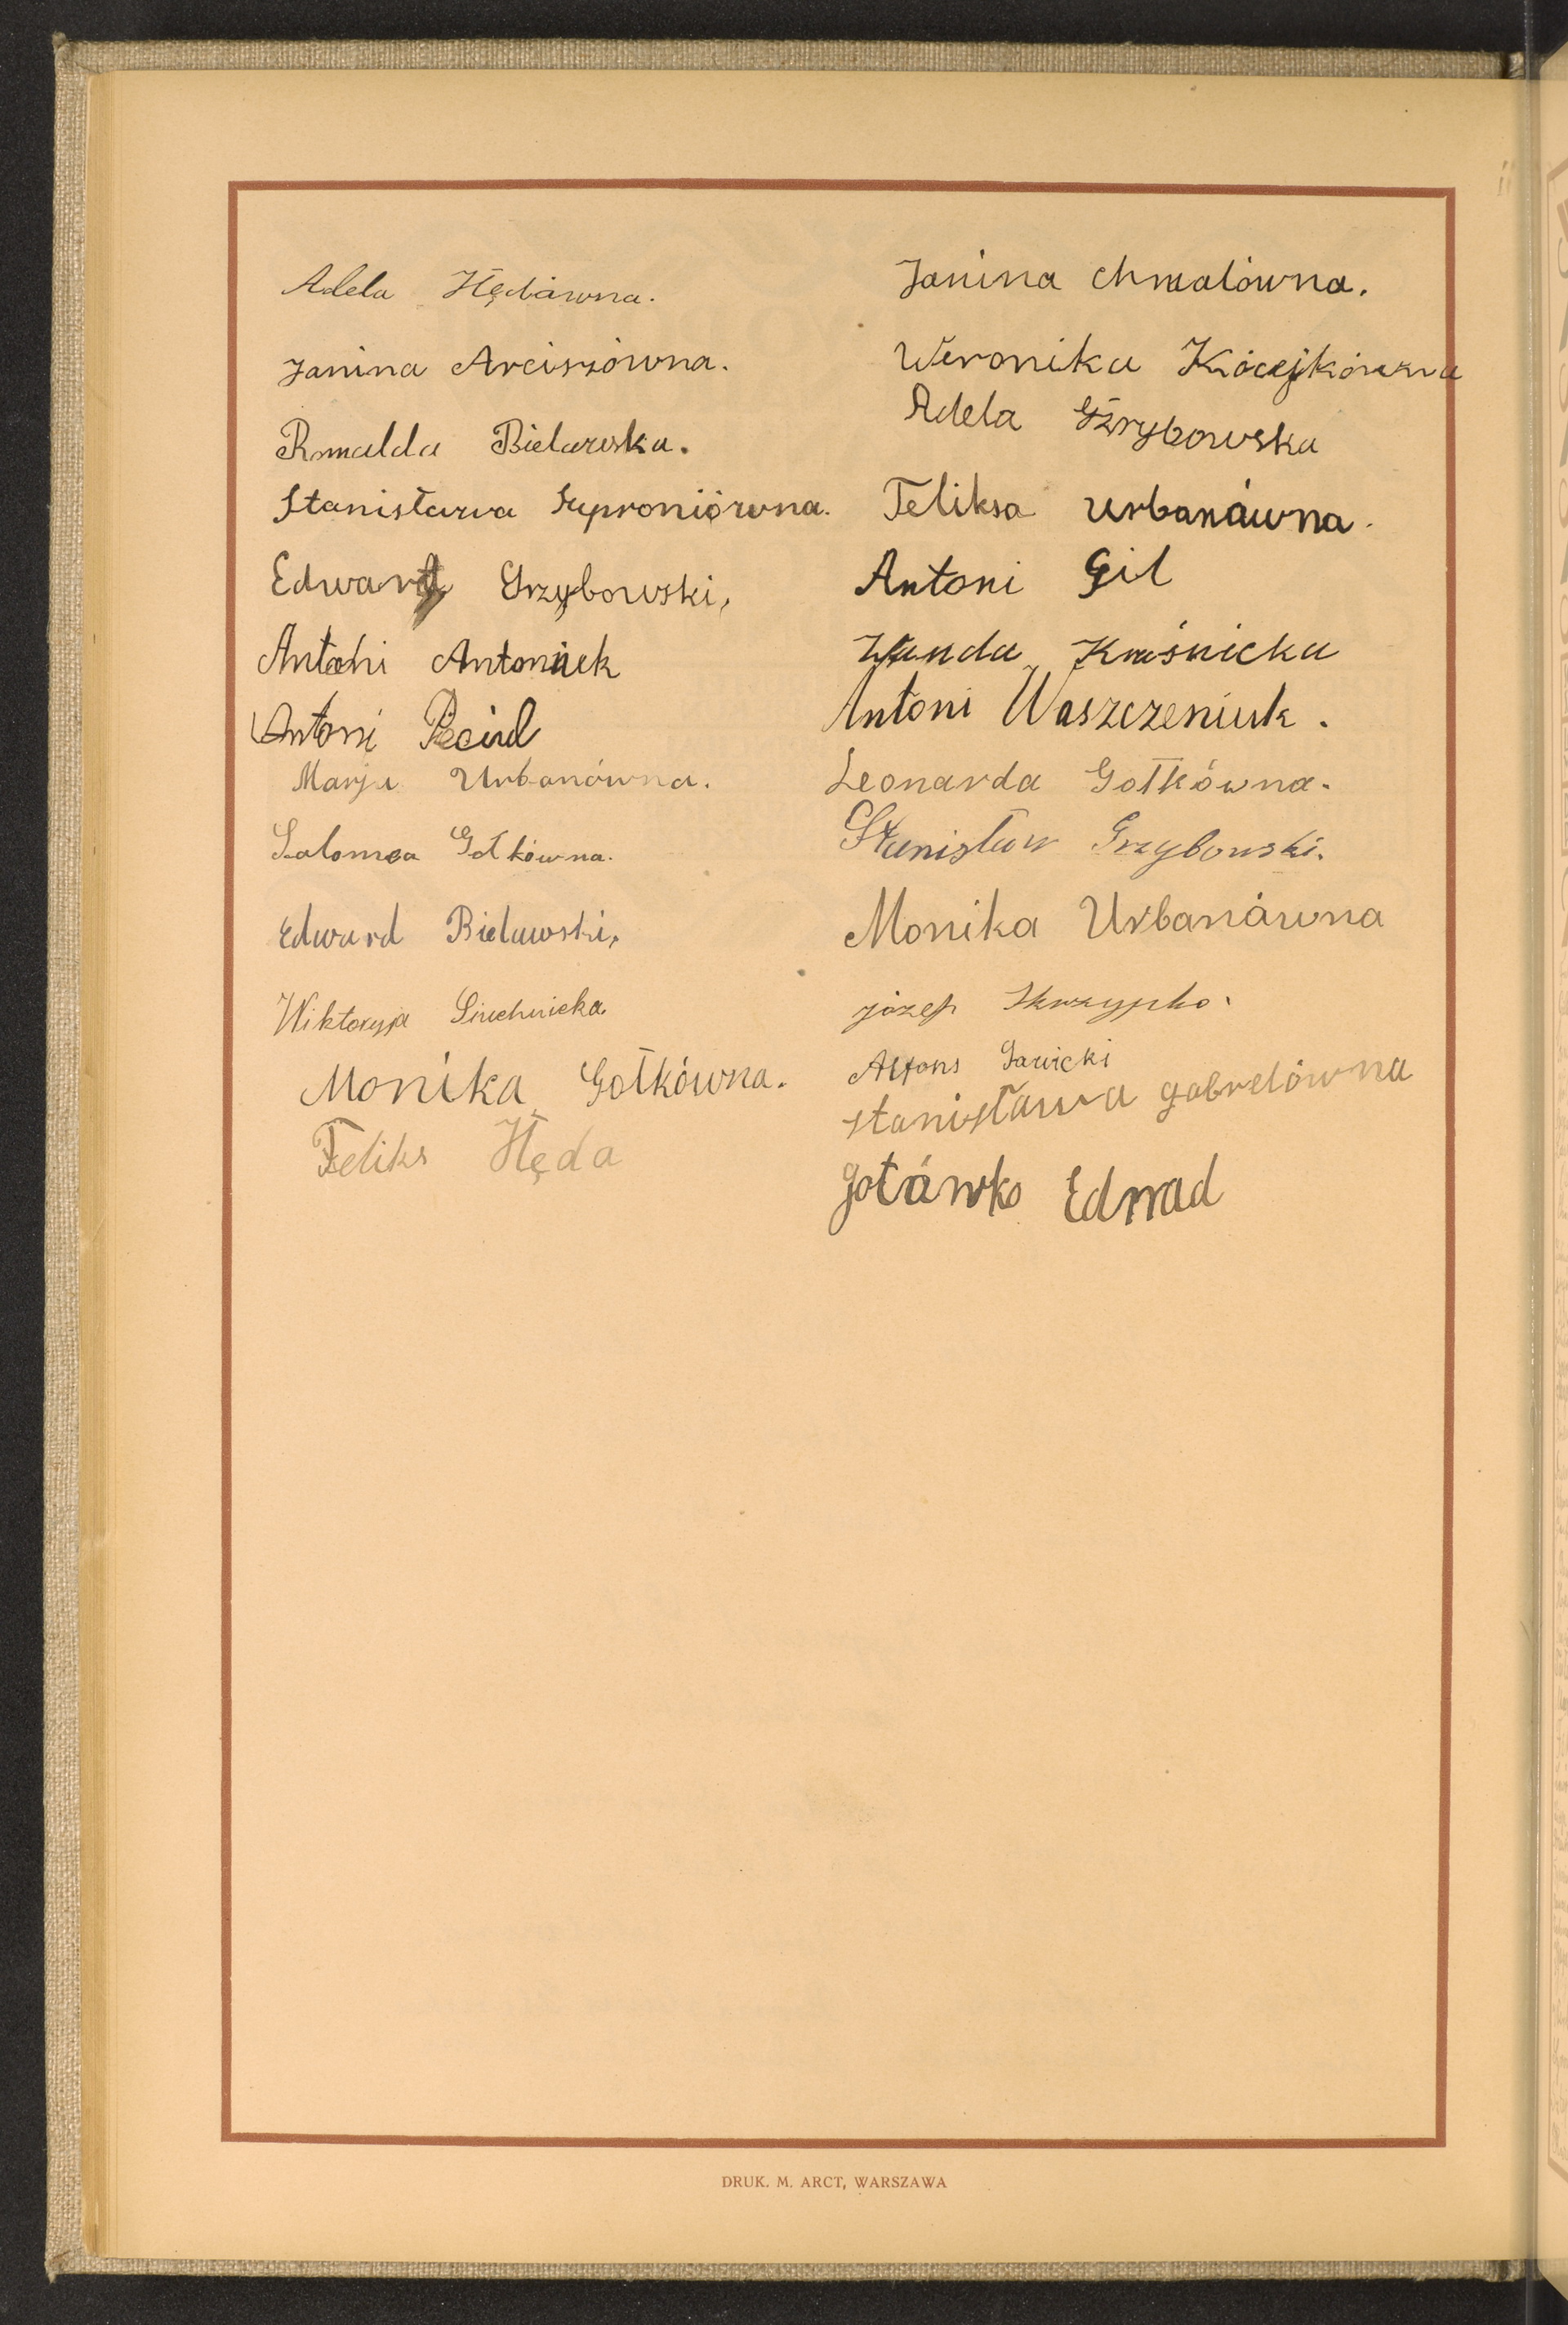 Adela Hędówna.
Janina Arciszówna.
Romualda Bielawska.
Stanisława Syproniówna.
Edward Grzybowski,
Antoni Antoniuk
Antoni
Marja Urbanówna.
Salomea Gołkówna.
Edward Bielawski,
Wiktoryja
Monika Gołkówna.
Feliks Hęda
Janina Chmalówna.
Weronika
Adela Gżrybowska
Feliksa Urbanówna.
Antoni Gil
Wanda Kraśnicka
Antoni Waszczeniuk.
Leonarda Gołkówna.
Stanisław Grzybowski.
Monika Urbanówna
józef Skrzypko.
Alfons Sawicki
stanisława gabrelówna
Gołáwko Edwad
DRUK. M. ARCT, WARSZAWA